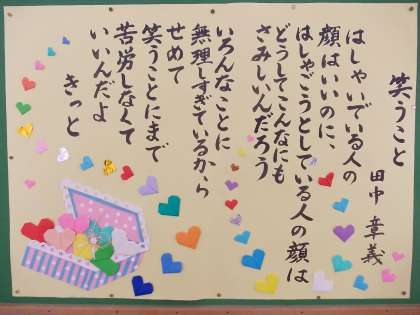 笑うこと
田中 章義
はしゃいでいる人の
顔はいいのに、
はしゃごうとしている人の顔は
どうしてこんなにも
さみしいんだろう
いろんなことに
無理しすぎているから
せめて
笑うことにまで
苦労しなくて
いいんだよ
きっと